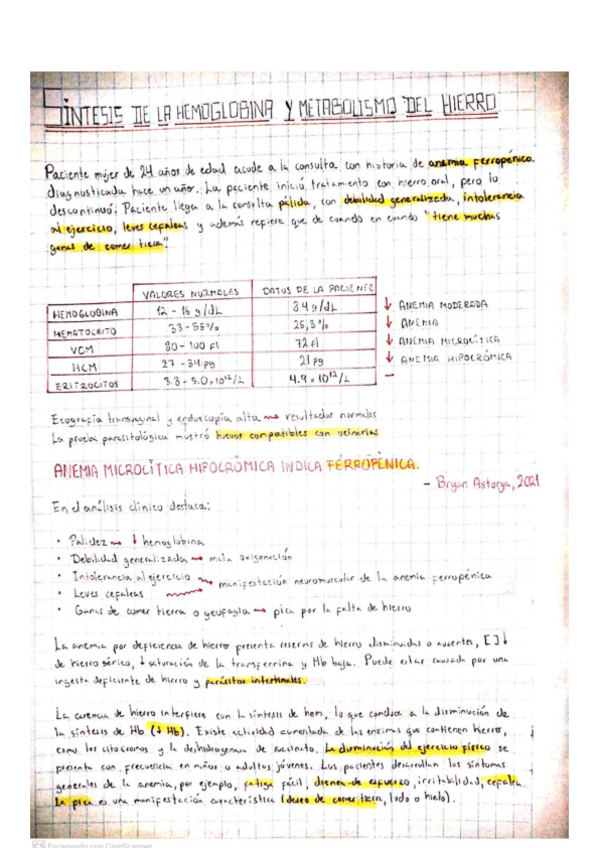 SÍNTESIS DE LA HEMOGLOBINA Y METABOLISMO DEL HIERRO
Paciente mujer de 24 años de edad acude a la consulta con historia de anemia ferropénica
diagnosticada hace un año. La paciente inició tratamiento con hierro oral, pero lo
descontinuó. Paciente llega a la consulta pálida, con debilidad generalizada, intolerancia
al ejercicio, leves cefaleas y además refiere que de cuando en cuando "tiene muchas
ganas de comer tierra".
VALORES NORMALES DATOS DE LA PACIENTE
HEMOGLOBINA 12 - 16 g/dL 84 g/L ↓ ANEMIA MODERADA
HEMATOCRITO 33 - 55% 25,3% ↓ ANEMIA
VCM 80 - 100 fl 72 fl ↓ ANEMIA MICROCÍTICA
HCM 27 - 34 pg 21 pg ↓ ANEMIA HIPOCRÓMICA
ERITROCITOS 3.8 - 5.0 x 10¹²/L 4.9 x 10¹²/L —
Ecografía transvaginal y endoscopía alta → resultados normales
La prueba parasitológica mostró huevos compatibles con uncinarias
ANEMIA MICROCÍTICA HIPOCRÓMICA INDICA FERROPÉNICA.
- Bryan Astorga, 2021
En el análisis clínico destaca:
• Palidez → ↓ hemoglobina
• Debilidad generalizada → mala oxigenación
• Intolerancia al ejercicio → manifestación neuromuscular de la anemia ferropénica
• Leves cefaleas →
• Ganas de comer tierra o geofagia → pica por la falta de hierro
La anemia por deficiencia de hierro presenta reservas de hierro disminuidas o ausentes, [ ] ↓
de hierro sérico, ↓ saturación de la transferrina y Hb baja. Puede estar causada por una
ingesta deficiente de hierro y parásitos intestinales.
La carencia de hierro interfiere con la síntesis de hem, lo que conduce a la disminución de
la síntesis de Hb (↓ Hb). Existe actividad aumentada de las enzimas que contienen hierro,
como los citocromos y la deshidrogenasa de succinato. La disminución del ejercicio físico se
presenta con frecuencia en niños o adultos jóvenes. Los pacientes desarrollan los síntomas
generales de la anemia, por ejemplo, fatiga fácil, disnea de esfuerzo, irritabilidad, cefalea.
La pica es una manifestación característica (deseo de comer tierra, lodo o hielo).
CS Escaneado con CamScanner